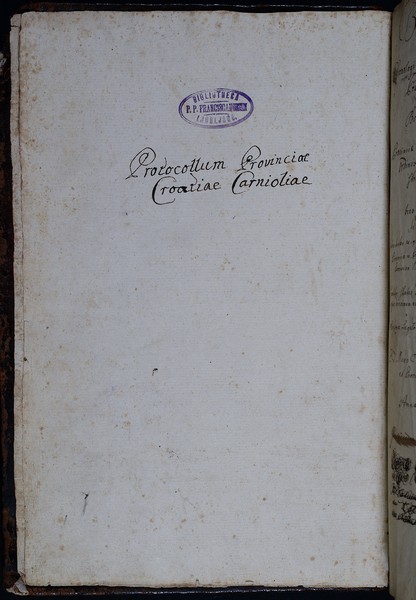 BIBLIOTHECA
P. P. FRANCISCANORUM
LJUBLJANI.
Protocollum Provinciae
Croatiae Carnioliae